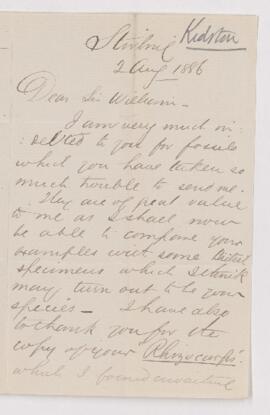 Kidston
Stirling
2 Aug 1886
Dear Sir William -
I am very much in:
:debted to you for fossils
which you have taken so
much trouble to send me.
They are of great value
to me as I shall now
be able to compare your
examples with some British
specimens which I think
may turn out to be your
species - I have also
to thank you for the
copy of your "Rhizocarps".
which I found awaiting